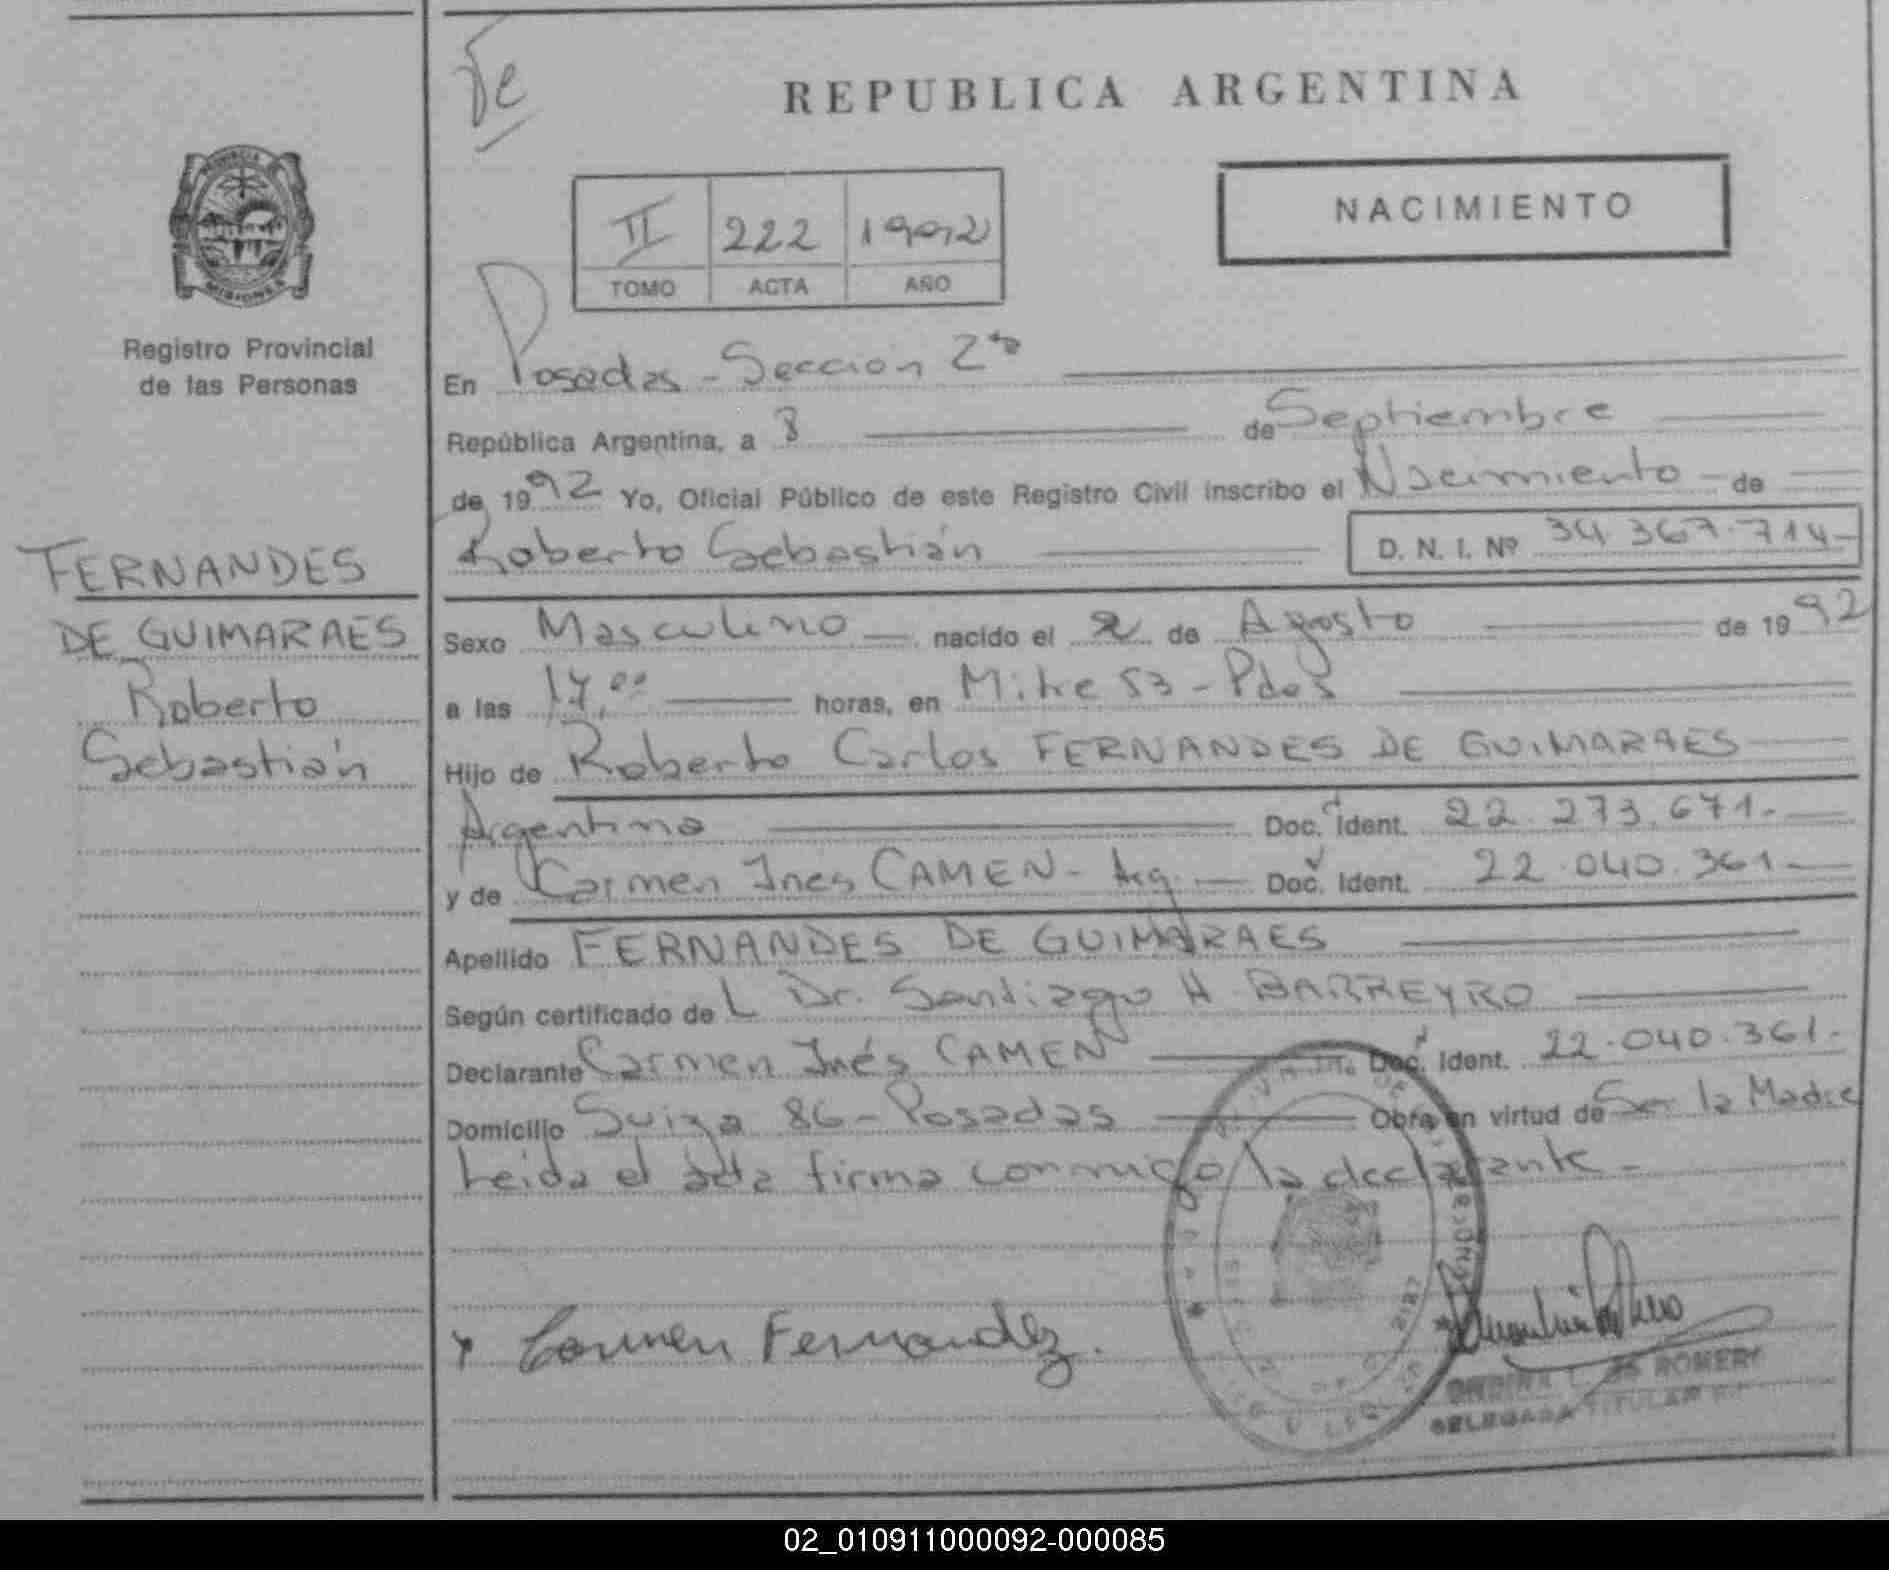 REPUBLICA ARGENTINA
NACIMIENTO
II 222 1992
TOMO ACTA AÑO
PROVINCIA
MISIONES
Registro Provincial
de las Personas
En Posadas - Sección 2da
República Argentina, a 8 de Septiembre
de 1992 Yo, Oficial Público de este Registro Civil inscribo el Nacimiento - de
Roberto Sebastián D. N. I. Nº 34.367.714-
FERNANDES
DE GUIMARAES
Roberto
Sebastián
Sexo Masculino nacido el 2 de Agosto de 1992
a las 17,00 horas, en Mitre 53 - Pdas
Hijo de Roberto Carlos FERNANDES DE GUIMARAES
Argentino Doc. Ident. 22.273.671.-
y de Carmen Ines CAMEN - Arg. - Doc. Ident. 22.040.361-
Apellido FERNANDES DE GUIMARAES
Según certificado de L Dr. Santiago H BARREYRO
Declarante Carmen Inés CAMEN Doc. Ident. 22.040.361.
Domicilio Suiza 86 - Posadas Obra en virtud de Ser la Madre
Leida el acta firma conmigo la declarante -
Carmen Fernandez.
ROMERO
DELEGADA TITULAR
02_010911000092-000085